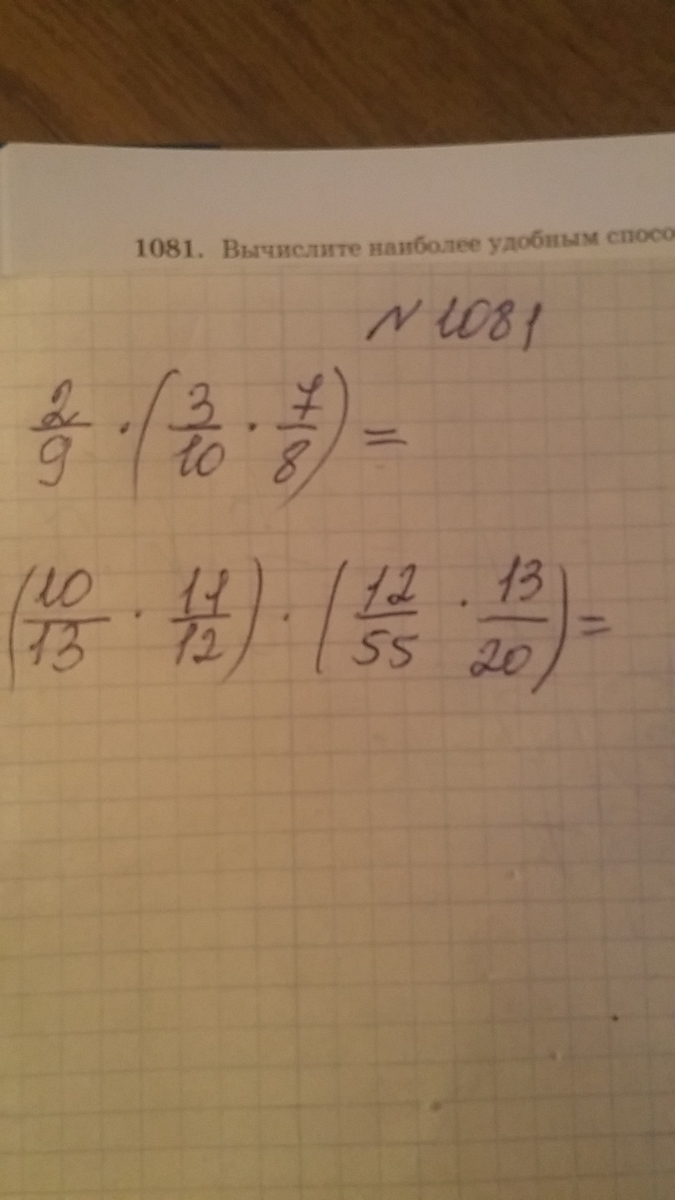 1081. Вычислите наиболее удобным спосо
N 1081
2/9 · (3/10 · 7/8) =
(10/13 · 11/12) · (12/55 · 13/20) =